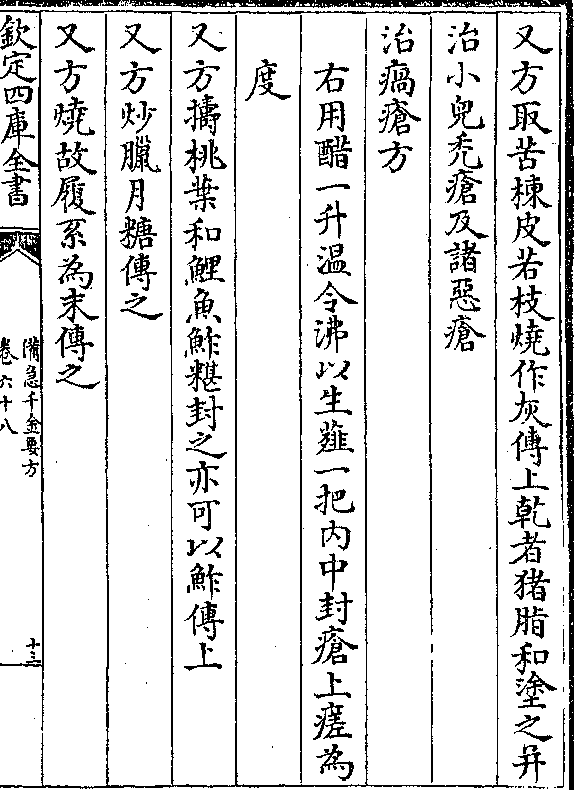 又方取苦楝皮若枝燒作灰傅上乾者猪脂和塗之并
治小兒禿瘡及諸惡瘡
治瘑瘡方
右用醋一升温令沸以生薤一把内中封瘡上瘥為
度
又方擣桃葉和鯉魚鮓糂封之亦可以鮓傅上
又方炒臘月糖傅之
又方燒故履系為末傅之
欽定四庫全書
備急千金要方
卷六十八
十三